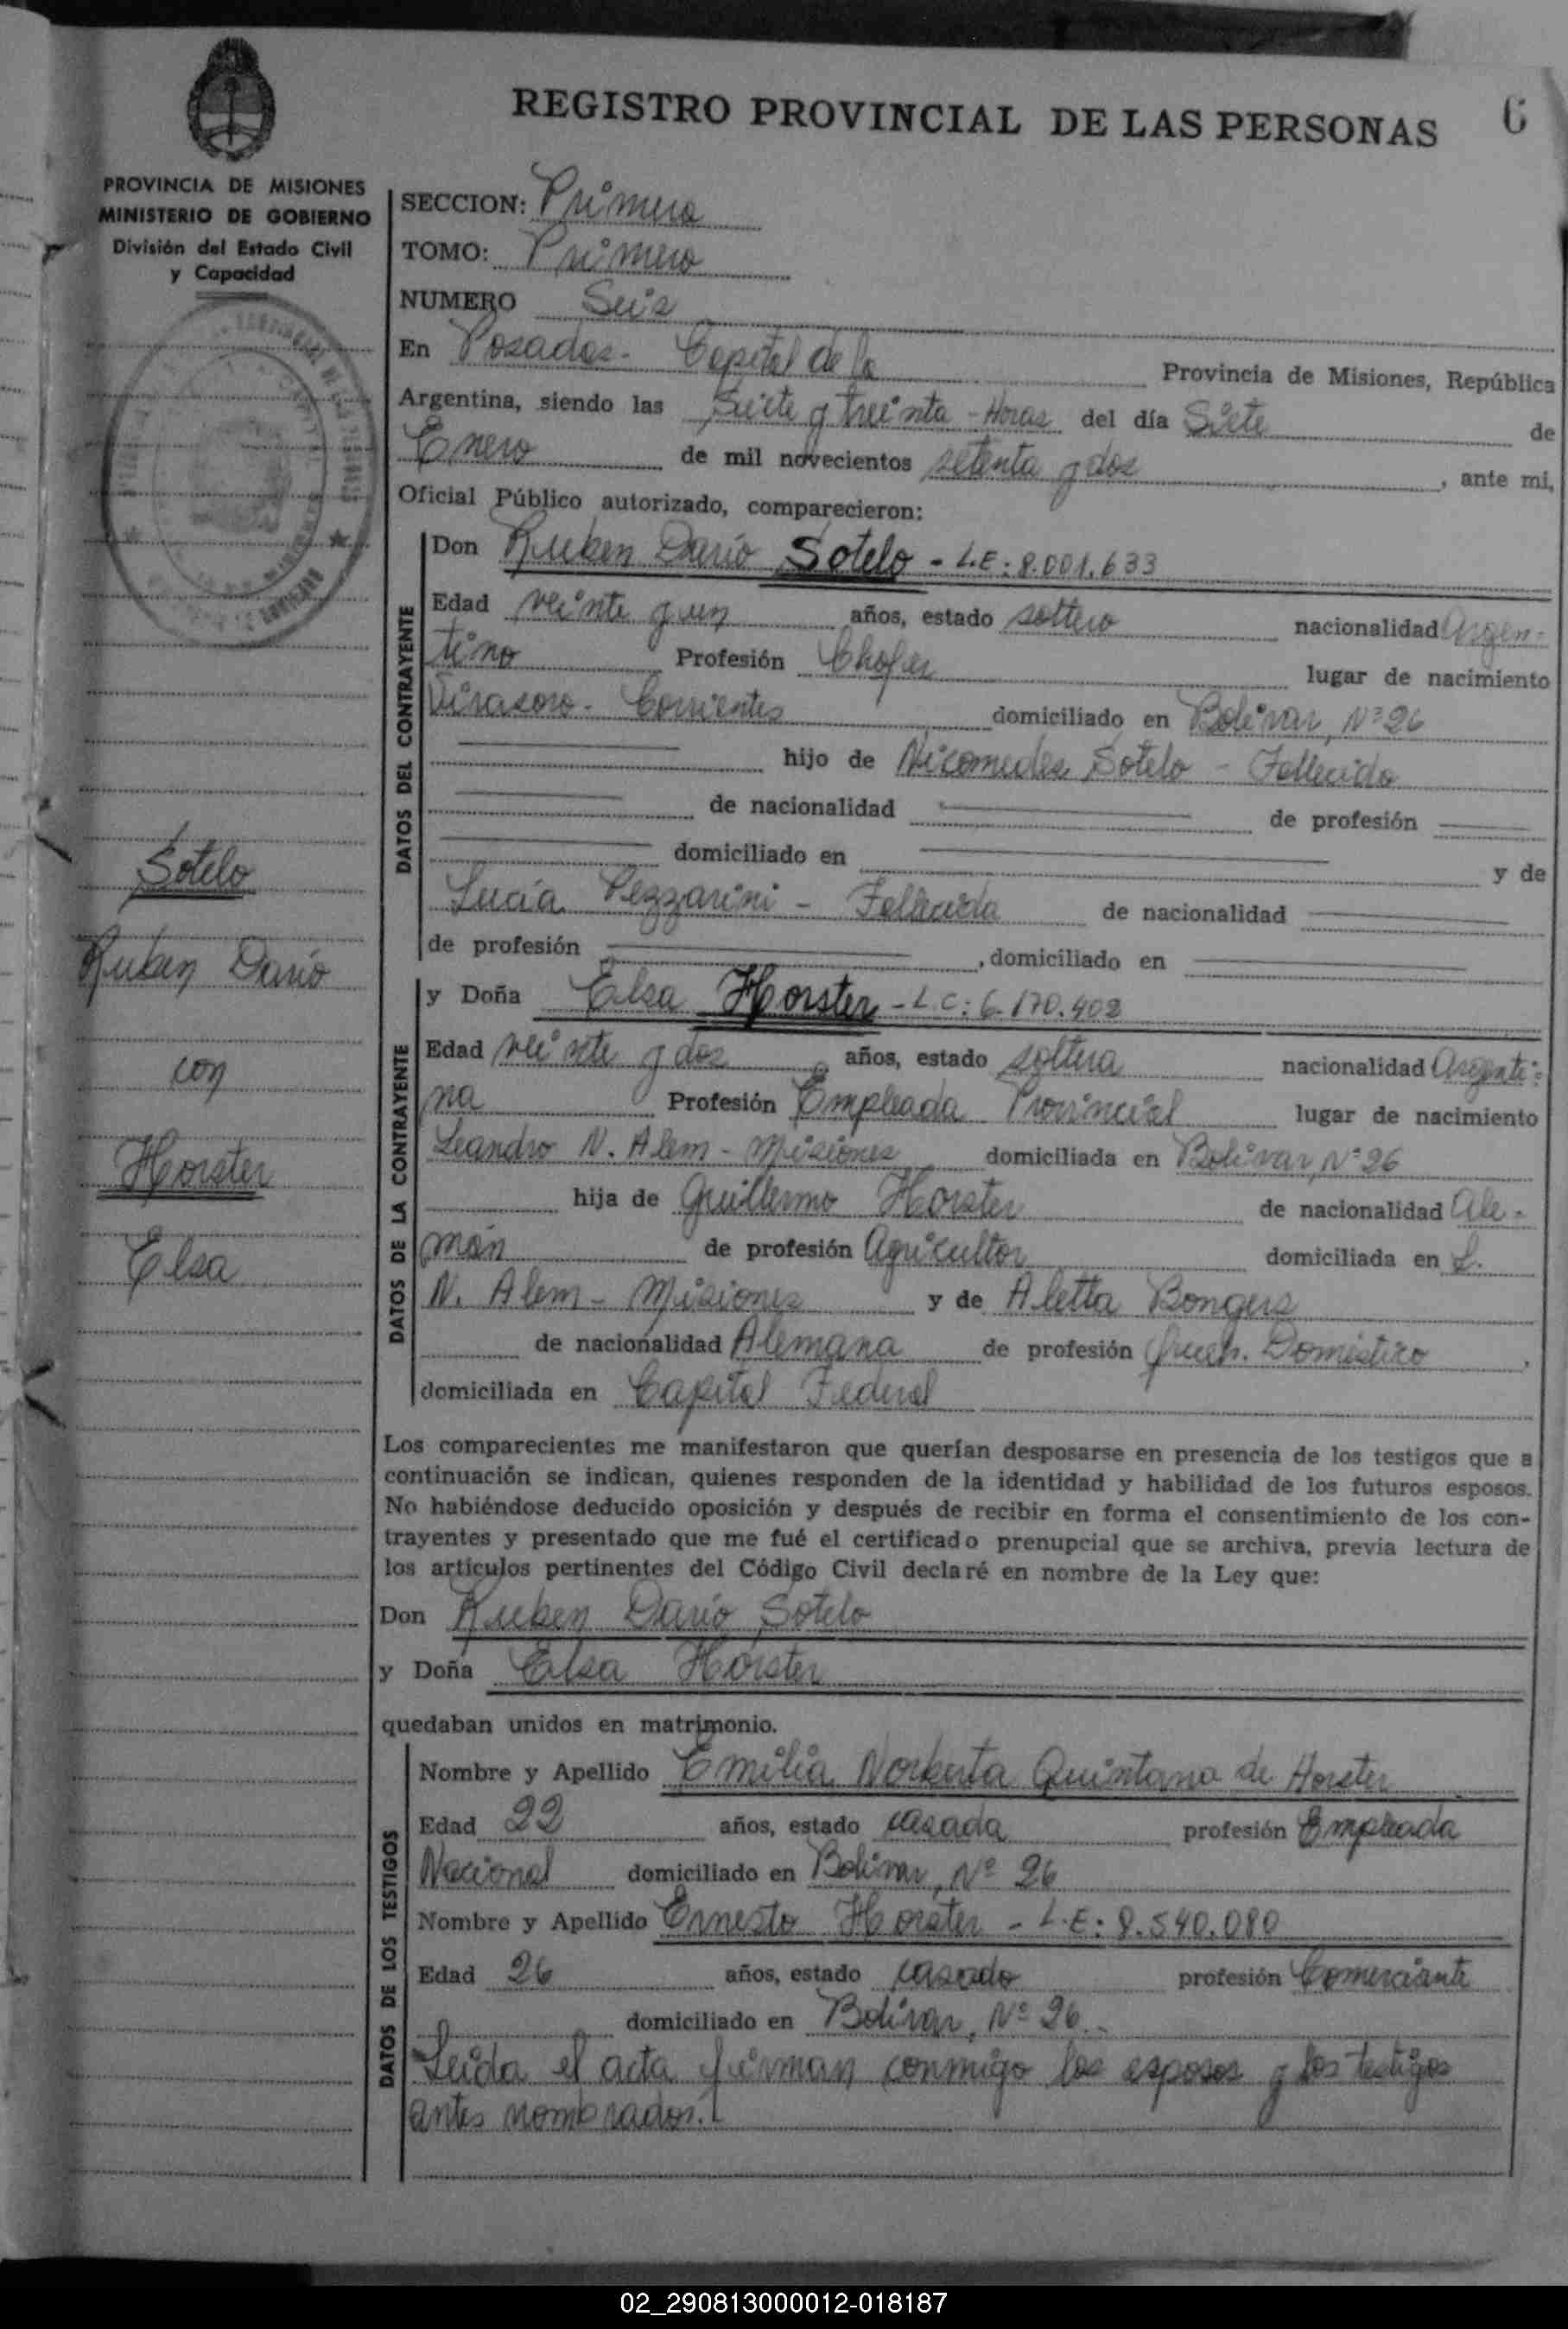 REGISTRO PROVINCIAL DE LAS PERSONAS
6
PROVINCIA DE MISIONES
MINISTERIO DE GOBIERNO
División del Estado Civil
y Capacidad
SECCION: Primera
TOMO: Primero
NUMERO Seis
En Posadas - Capital de la Provincia de Misiones, República
Argentina, siendo las Siete y treinta - Horas del día Siete de
Enero de mil novecientos setenta y dos, ante mi,
Oficial Público autorizado, comparecieron:
DATOS DEL CONTRAYENTE
Don Ruben Darío Sotelo - L.E: 8.001.633
Edad veinte y un años, estado soltero nacionalidad Argen-
tino Profesión Chofer lugar de nacimiento
Virasoro - Corrientes domiciliado en Bolívar, Nº 26
hijo de Nicomedes Sotelo - Fallecido
de nacionalidad de profesión
domiciliado en y de
Lucía Pezzarini - Fallecida de nacionalidad
de profesión , domiciliado en
Sotelo
Ruben Darío
con
Horster
Elsa
DATOS DE LA CONTRAYENTE
y Doña Elsa Horster - L.C: 6.170.402
Edad veinte y dos años, estado soltera nacionalidad Argenti-
na Profesión Empleada Provincial lugar de nacimiento
Leandro N. Alem - Misiones domiciliada en Bolívar, Nº 26
hija de Guillermo Horster de nacionalidad Ale-
mán de profesión Agricultor domiciliada en L.
N. Alem - Misiones y de Aletta Bongers
de nacionalidad Alemana de profesión Queh. Doméstico,
domiciliada en Capital Federal
Los comparecientes me manifestaron que querían desposarse en presencia de los testigos que a
continuación se indican, quienes responden de la identidad y habilidad de los futuros esposos.
No habiéndose deducido oposición y después de recibir en forma el consentimiento de los con-
trayentes y presentado que me fué el certificado prenupcial que se archiva, previa lectura de
los artículos pertinentes del Código Civil declaré en nombre de la Ley que:
Don Ruben Darío Sotelo
y Doña Elsa Horster
quedaban unidos en matrimonio.
DATOS DE LOS TESTIGOS
Nombre y Apellido Emilia Norberta Quintana de Horster
Edad 22 años, estado casada profesión Empleada
Nacional domiciliado en Bolívar, Nº 26
Nombre y Apellido Ernesto Horster - L.E: 8.540.080
Edad 26 años, estado casado profesión Comerciante
domiciliado en Bolívar, Nº 26.
Leída el acta firman conmigo los esposos y los testigos
antes nombrados.
02_290813000012-018187